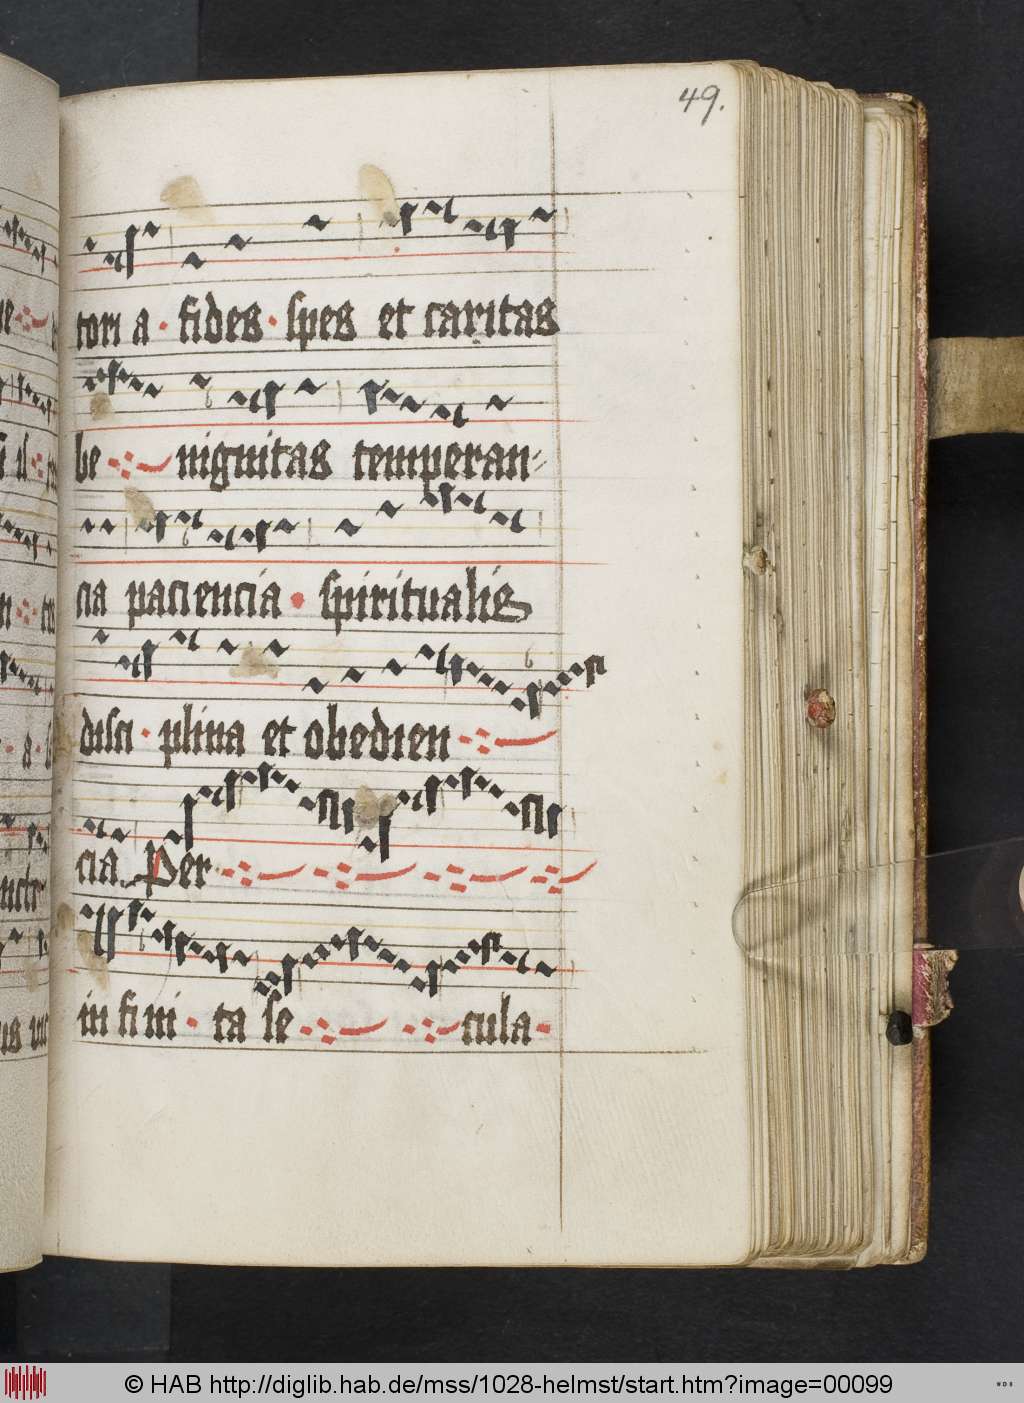 49.
tori a · fides · spes et caritas
be nignitas temperan-
cia paciencia · spiritualis
disci · plina et obedien
cia. Per
in fi ni · ta se cula
© HAB http://diglib.hab.de/mss/1028-helmst/start.htm?image=00099